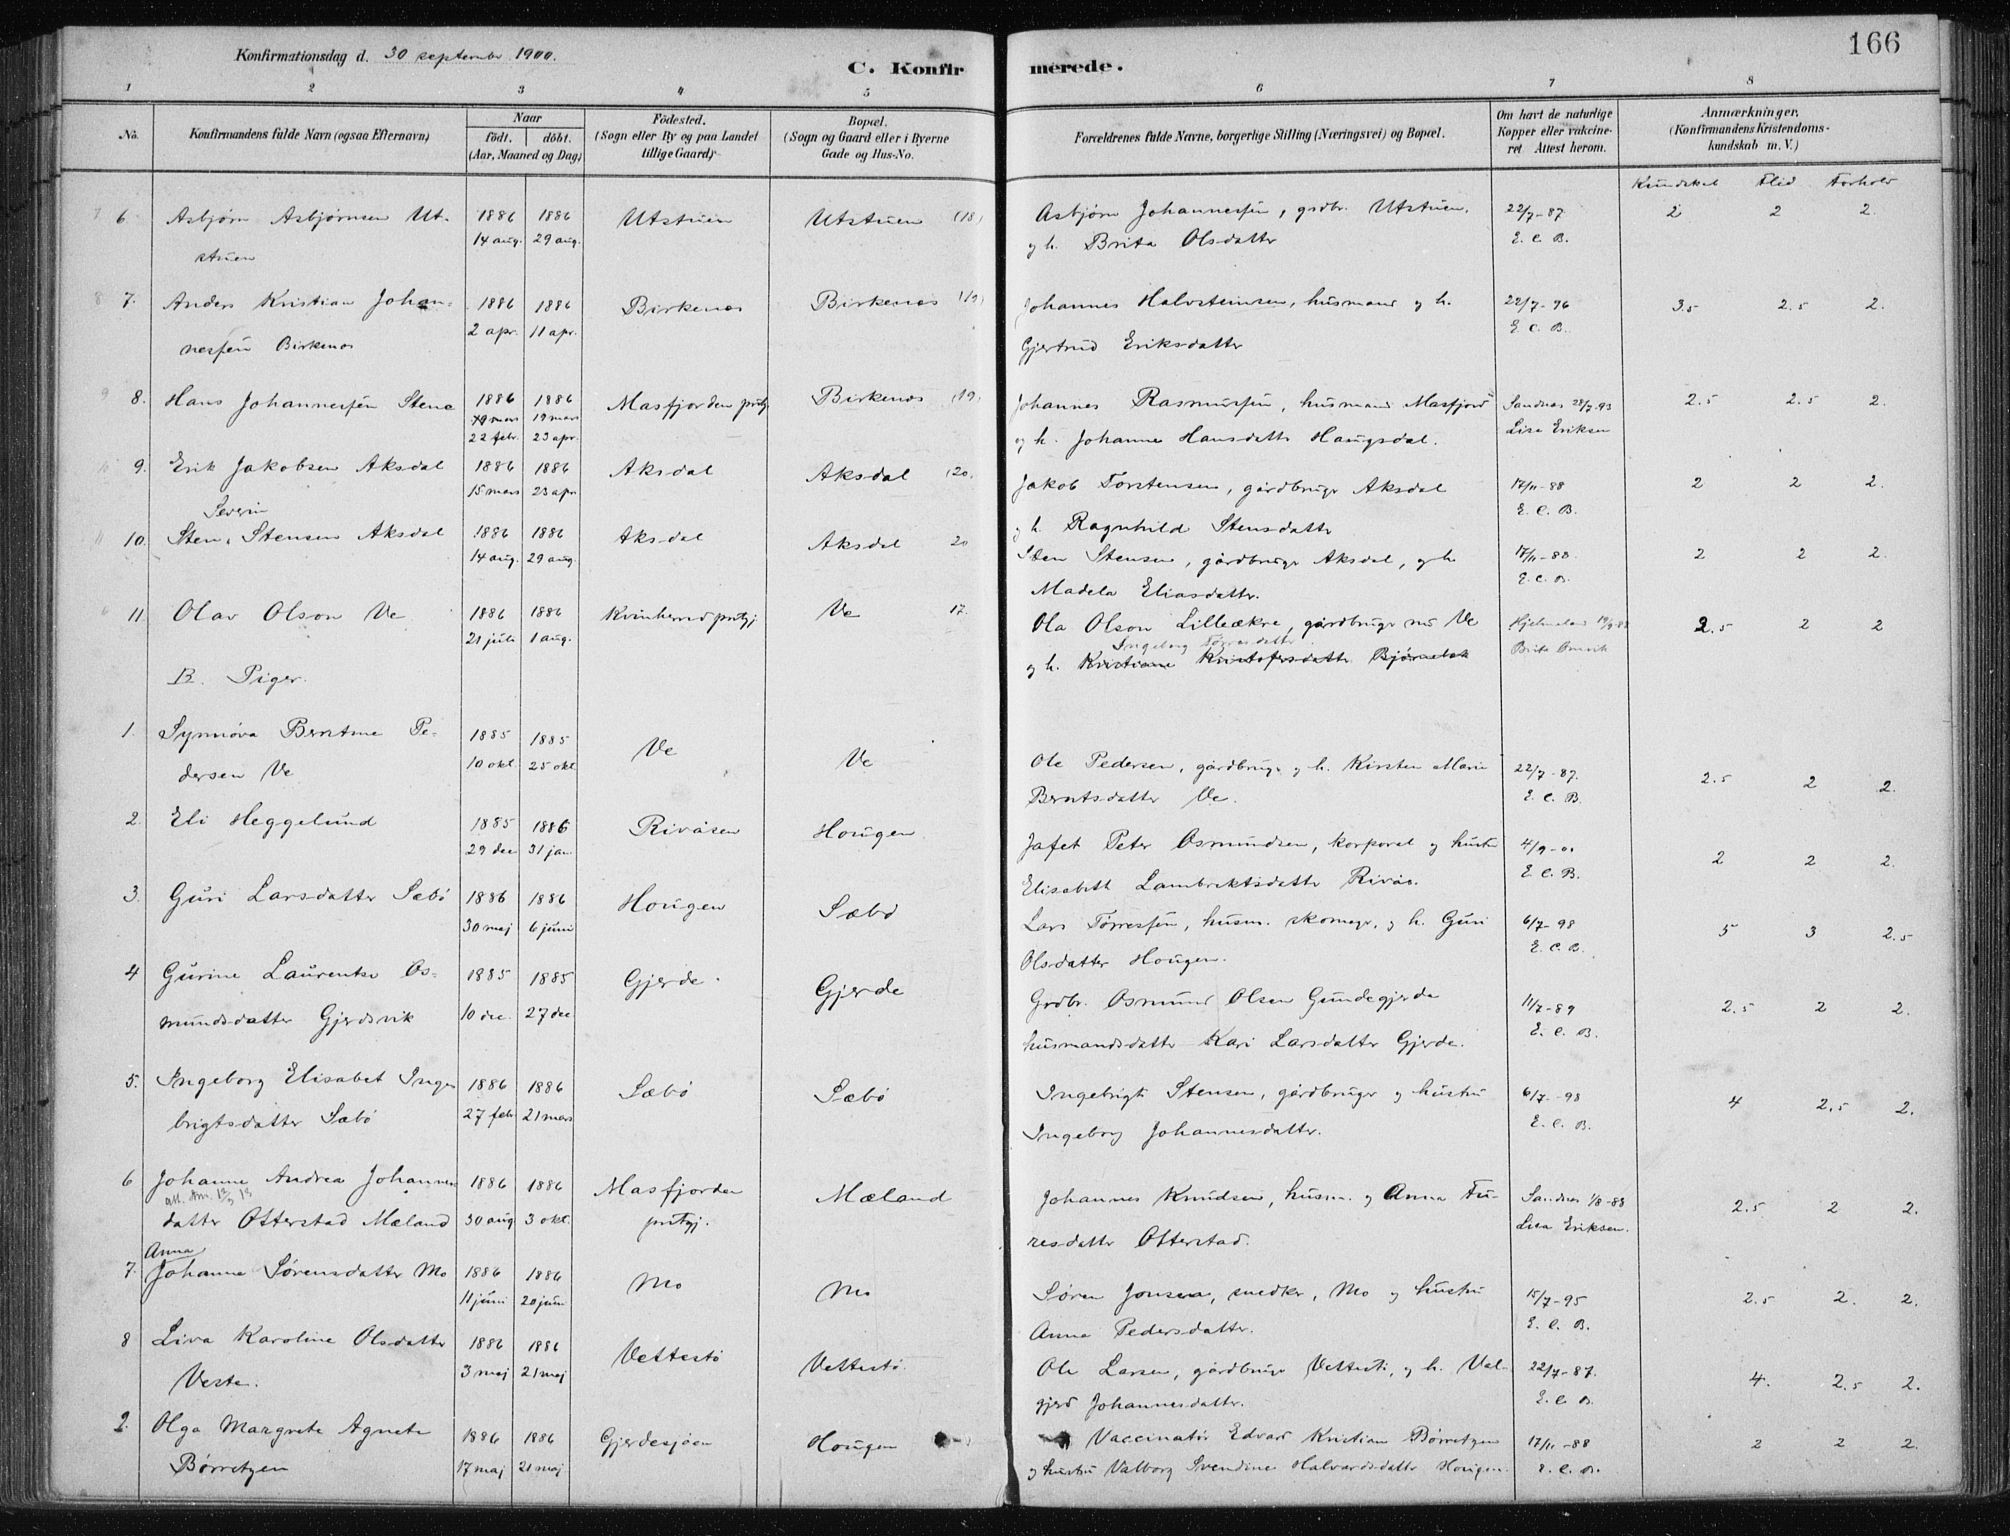 166
Konfirmationsdag d. 30 september 1900.
C. Konfirmerede.
1 2 3 4 5 6 7 8
No.
Konfirmandens fulde Navn (ogsaa Efternavn)
Naar
født. döbt.
(Aar, Maaned og Dag)
Födested.
(Sogn eller By og paa Landet
tillige Gaard)
Bopæl.
(Sogn og Gaard eller i Byerne
Gade og Hus-No.
Forældrenes fulde Navne, borgerlige Stilling (Næringsvei) og Bopæl.
Om havt de naturlige
Kopper eller vakcine-
ret Attest herom.
Anmærkninger.
(Konfirmandens Kristendoms-
kundskab m. V.)
Kundskab Flid Forhold
7 6 Asbjørn Asbjørnsen Ut- 1886 1886 Utstuen Utstuen (18) Asbjørn Johannesfen, grdbr. Utstuen, 22/7-87 2 2 2.
stuen 14 aug. 29 aug. og h. Brita Olsdatter E. C. B.
8 7. Anders Kristian Johan- 1886 1886 Birkenes Birkenes (19) Johannes Halvsteinsen, husmand og h. 22/7-96 3.5 2.5 2.
nesfen Birkenes 2 apr. 11 apr. Gjertrud Eriksdatter E. C. B.
9 8. Hans Johannesfen Stene 1886 1886 Masfjorden prstgj Birkenes (19) Johannes Rasmusfen, husmand Masfjord Sandnes 28/7-93 2.5 2.5 2.
19 mars 19 mars
22 febr. 23 apr. og h. Johanne Hansdatter Haugsdal. Lisa Eriksen
10 9. Erik Jakobsen Aksdal 1886 1886 Aksdal Aksdal (20. Jakob Torstensen, gårdbruger Aksdal 17/11-88 2 2 2.
15 mars 23 apr og h. Ragnhild Stensdatter E. C. B.
Severin
11 10. Sten Stensen Aksdal 1886 1886 Aksdal Aksdal 20 Sten Stensen, gårdbruger Aksdal, og h. 17/11-88. 2 2 2.
14 aug. 29 aug. Madela Eliasdatter. E. C. B.
6 11. Olav Olson Ve 1886 1886 Kvinherred prstgj Ve 17. Ola Olson Lilleækre, gårdbruger nu Ve Hjelmeland 2.5 2 2
21 juli 1 aug. Ingeborg Tørresdatter
og h. Kristiane Kristofersdatter Bjørnebøk Brita
B. Piger.
1. Synnöva Berntine Pe- 1885 1885 Ve Ve Ole Pedersen, gårdbruger og h. Kirsten Marie 22/7-87. 2.5 2 2.
dersen Ve 10 okt. 25 okt Berntsdatter Ve. E. C. B.
2. Eli Heggelund 1885 1886 Rivåsen Hougen Jafet Peter Osmundsen, korporal og hustru 4/9-00 2 2 2.
29 dec 31 jan. Elisabeth Lambrektsdatter Rivås. E. C. B.
3. Guri Larsdatter Sæbö 1886 1886 Hougen Sæbö Lars Tørresfen, husm. skomager, og h. Guri 6/7-98 5 3 2.5
30 maj 6 juni Olsdatter Hougen. E. C. B.
4 Gurine Laurentse Os- 1885 1885 Gjerde. Gjerde Grdbr. Osmund Olsen Gundegjerde 11/7-89 2.5 2 2.
mundsdatter Gjerdsvik 10 dec. 27 dec husmandsdatter Kari Larsdatter Gjerde. E. C. B.
5. Ingeborg Elisabet Inge- 1886 1886 Sæbö Sæbö Ingebrigt Stensen, gårdbruger og hustru 6/7-98 4 2.5 2.
brigtsdatter Sæbö 27 febr 21 mars Ingeborg Johannesdatter. E. C. B.
6 Johanne Andrea Johannes 1886 1886 Masfjorden Mæland Johannes Knudsen, husm. og Anna Tu- Sandnes 1/8-88 2.5 2 2.
datter Otterstad Mæland 30 aug 3 okt. prstgj. resdatter Otterstad. Lisa Eriksen.
Anna
7. Johanne Sørensdatter Mo 1886 1886 Mo Mo Søren Jonsen, snedker, Mo og hustru 15/7-95 2.5 2. 2.
11 juni 20 juni Anna Pedersdatter. E. C. B.
8 Liva Karoline Olsdatter 1886 1886 Vettestö Vettestö Ole Larsen, gårdbruger Vettestö, og h. Val- 22/7-87. 4. 2.5 2.
Veste. 3 maj 21 maj gjerd Johannesdatter. E. C. B.
9. Olga Margrete Agnete 1886 1886 Gjerdesjöen Hougen Vaccinatör Edvard Kristian Børretzen 17/11-88 2 2 2.
Børretzen 17 maj 21 maj og hustru Valborg Svendine Halvardsdatter Hougen. E. C. B.